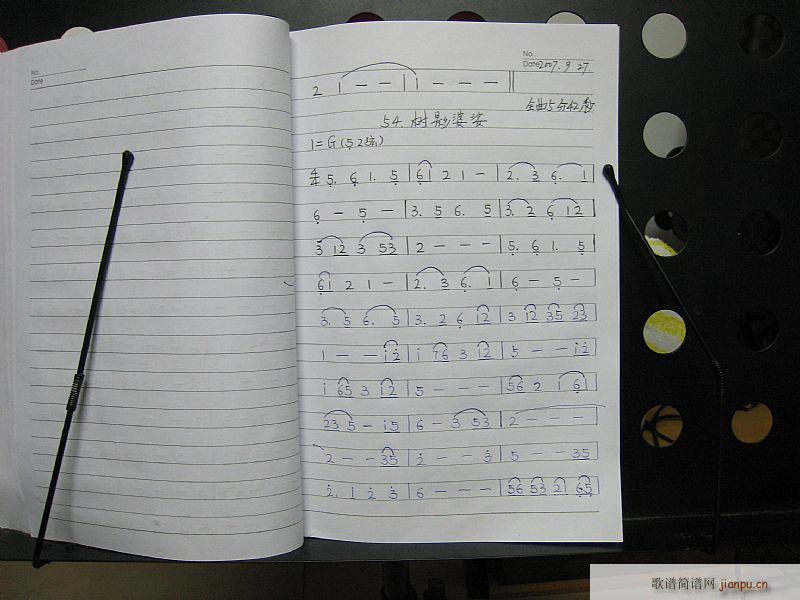 No.
Date
No.
Date 2007. 9. 27.
2 | i - - | i - - - ‖
全曲5分42秒
54. 树影婆娑
1=G(5̣ 2弦)
4/4 5̣. 6̣ 1. 5̣ | 6̣1 2 1 - | 2. 3 6̣. 1 |
6̣ - 5̣ - | 3. 5 6. 5 | 3. 2 6̣ 12 |
3 12 3 53 | 2 - - - | 5̣. 6̣ 1. 5̣ |
6̣1 2 1 - | 2. 3 6̣. 1 | 6̣ - 5̣ - |
3. 5 6. 5 | 3. 2 6̣ 12 | 3 12 35 23 |
1 - - i2̇ | i 76 3 i2̇ | 5 - - i2̇ |
i 65 3 i2̇ | 5 - - - | 56 2 1 6̣1 |
23 5 - i5 | 6 - 3 53 | 2 - - - |
2 - - 35 | 2̇ - - 3̇ | 5 - - 35 |
2̇. i 2̇ 3̇ | 6 - - - | 56 53 21 6̣5̣ |
歌谱简谱网 jianpu.cn